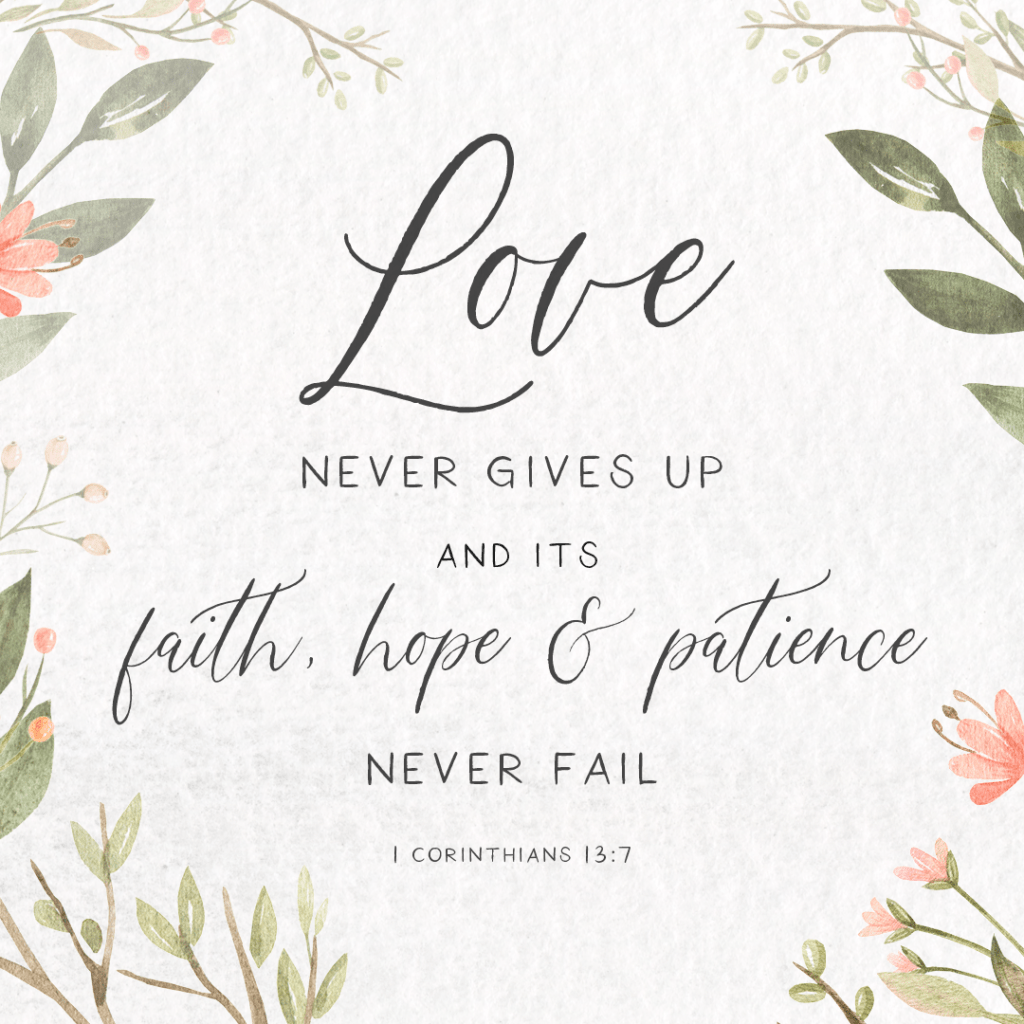 Love
NEVER GIVES UP
AND ITS
faith, hope & patience
NEVER FAIL
1 CORINTHIANS 13:7